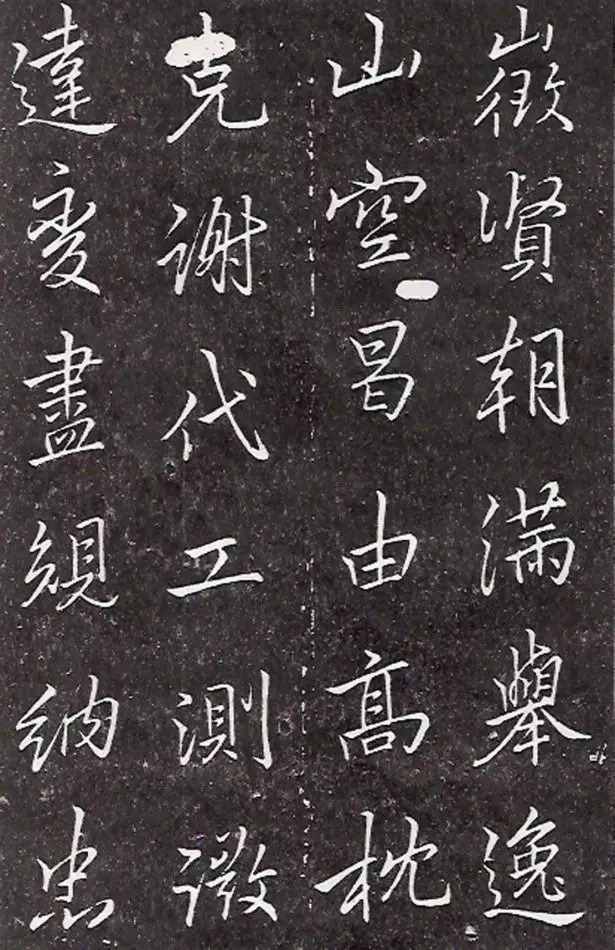 徵賢朝滿舉逸
山空昌由高枕
克謝代工測微
達變盡規納忠